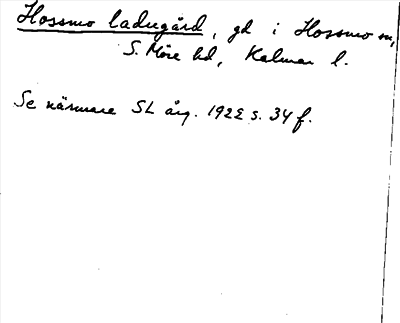 Hossmo ladugård, gd i Hossmo sn,
S. Möre hd, Kalmar l.
Se närmare SL årg. 1922 s. 34 f.